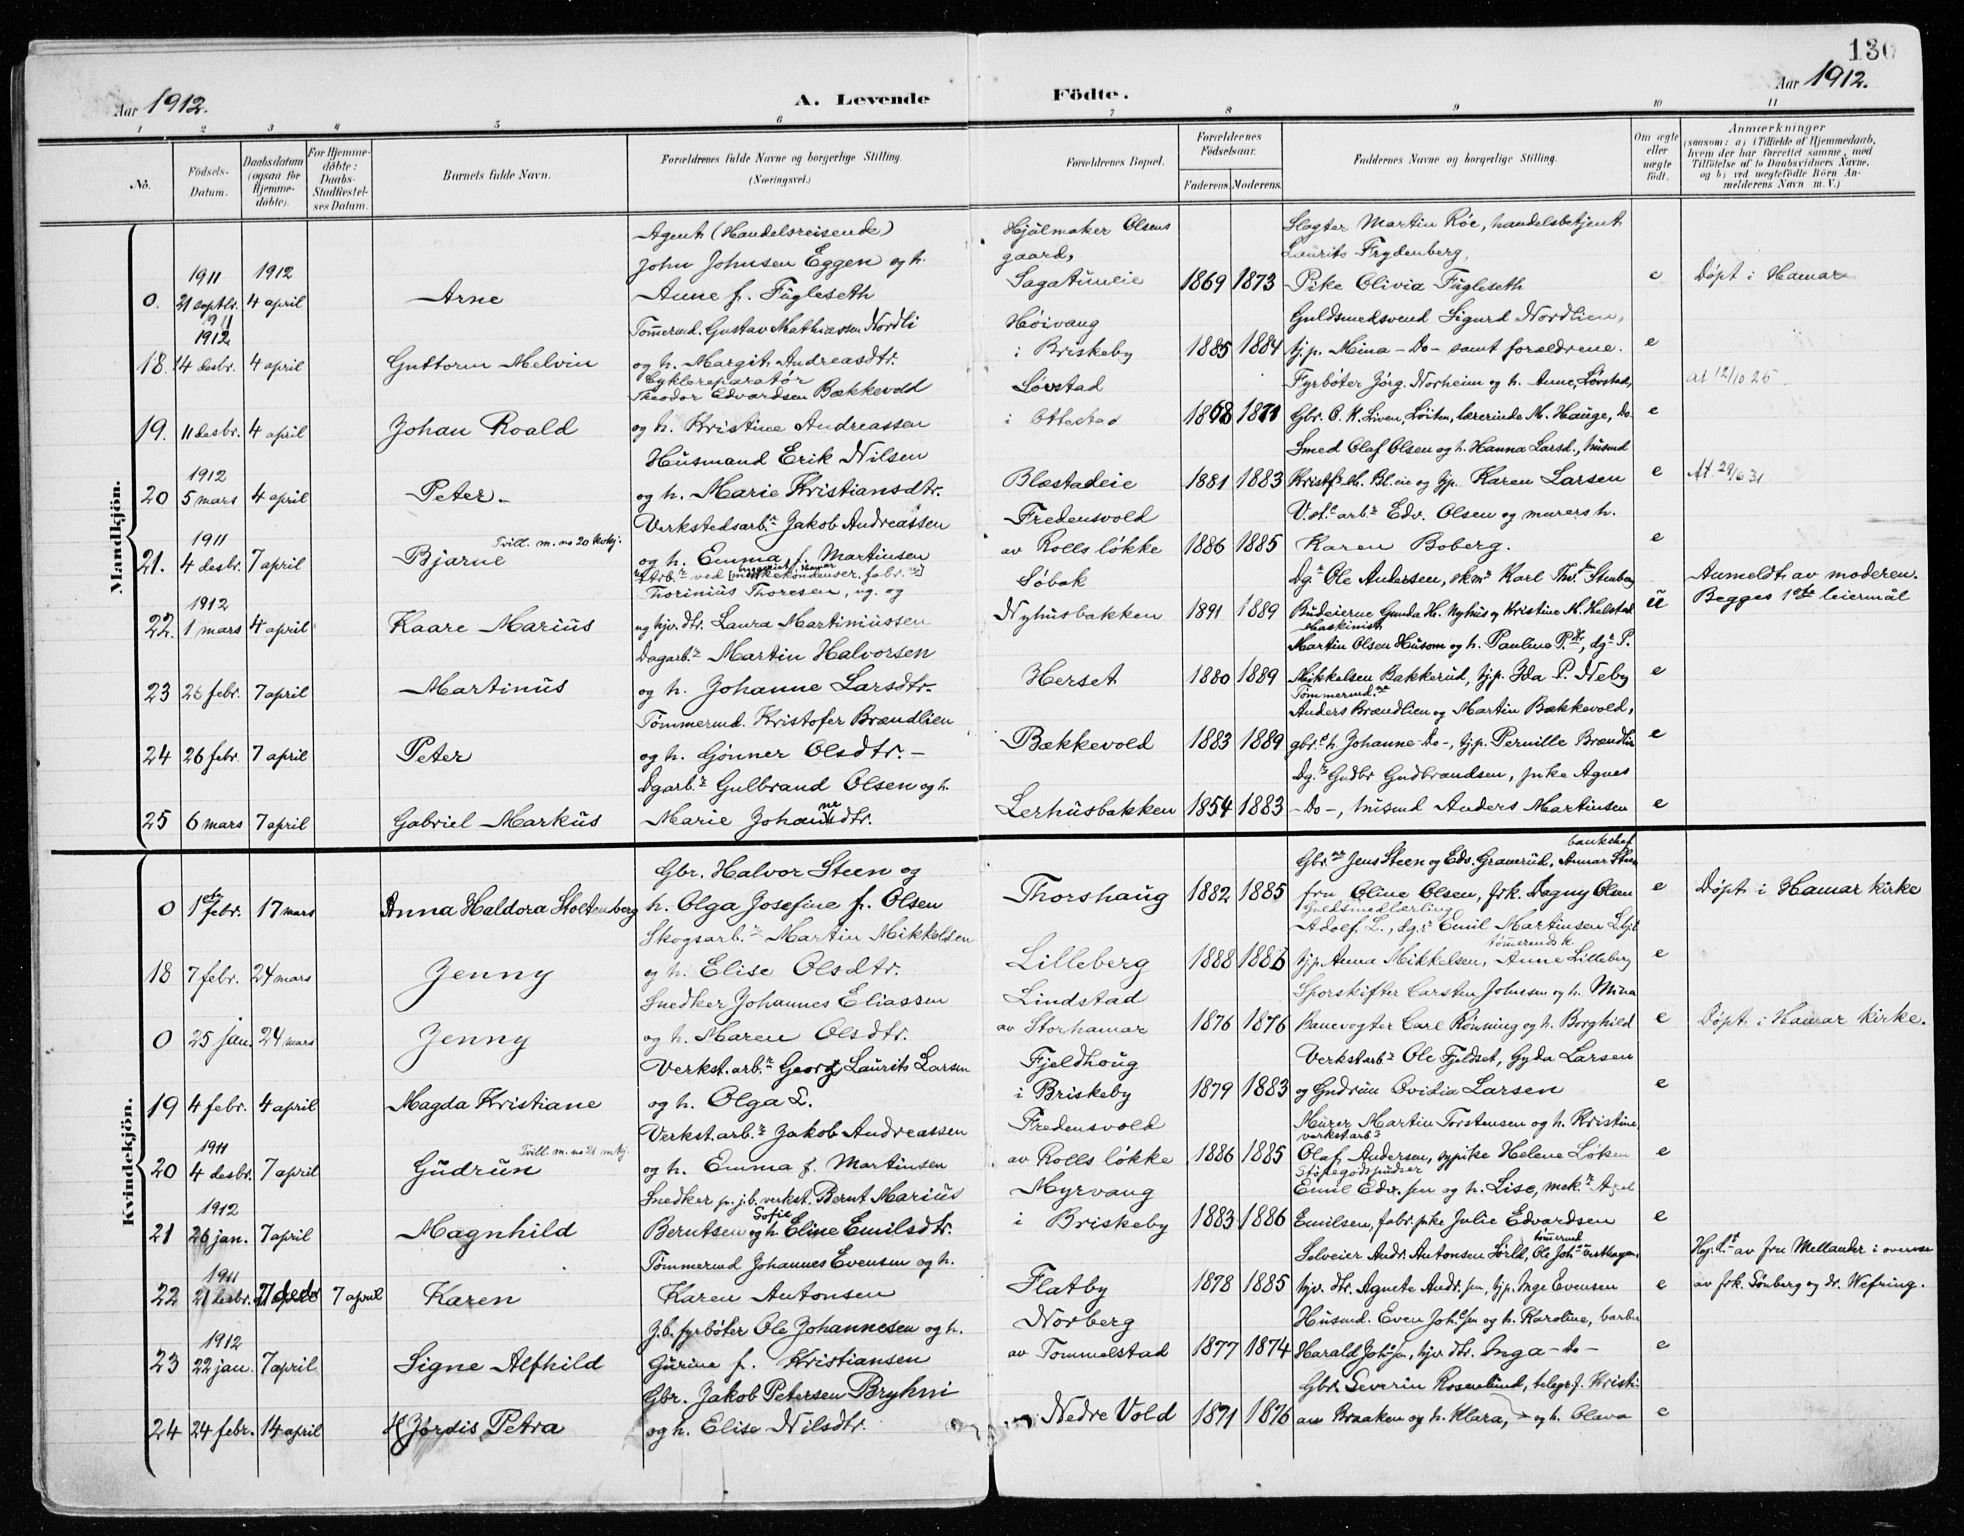 130
Aar 1912.
A. Levende Födte.
Aar 1912.
1 2 3 4 5 6 7 8 9 10 11
No.
Födsels-Datum.
Daabsdatum (ogsaa for Hjemme-döbte).
For Hjemme-döbte: Daabs-Stadfæstel-ses Datum.
Barnets fulde Navn.
Forældrenes fulde Navne og borgerlige Stilling. (Næringsvei.)
Forældrenes Bopæl.
Forældrenes Födselsaar.
Faderens. Moderens.
Faddernes Navne og borgerlige Stilling.
Om ægte eller uægte födt.
Anmærkninger
(saasom: a) i Tilfælde af Hjemmedaab, hvem der har forrettet samme, med Tilföielse af to Daabsvidners Navne, og b) ved uegtefödte Börn An-melderens Navn m. V.)
Mandkjön.
Agent (Handelsreisende) Hjulmaker Olsens Slagter Martin Röe, handelsbetjent
John Johnsen Eggen og h. gaard, Laurits Frydenberg,
1911 1912
0. 21 septbr. 4 april Arne Anne f. Fugleseth Sagatuneie 1869 1873 Pike Olivia Fugleseth e Døpt i Hamar
1911
Tømmermd. Gustav Mathiassen Nordli Høivang Guldsmedsvend Sigurd Nordlien,
1912
18. 14 desbr. 4 april Guttorm Melvin og h. Margit Andreasdtr. i Briskeby 1885 1884 tj.p. Mina -Do- samt forældrene. e
Cykloreparatør
Theodor Edvardsen Bækkevold Løvstad Fyrbøter Jörg. Norheim og h. Anne, Løvstad, at 12/10 25
19. 11 desbr. 4 april Johan Roald og h. Kristine Andreassen i Ottestad 1868 1871 Gbr. O. K. Liven, Løiten, lærerinde M. Hauge, Do. e
Husmand Erik Nilsen Smed Olaf Olsen og h. Hanna Larsd., husmd
1912
20 5 mars 4 april Peter og h. Marie Kristiansdtr. Blæstadeie 1881 1883 Kristf. M. Bl.eie og tjp. Karen Larsen e At. 29/6 31
Verkstedsarbr Jakob Andreassen Fredensvold V.st.arbr Edv. Olsen og murers h.
1911
Tvill. m. no 20 kvkj.
21. 4 desbr. 7 april Bjarne og h. Emma f. Martinsen av Rolls løkke 1886 1885 Karen Boberg. e
Søbak Dgr Ole Andersen, skmr Karl Thv. Anmeldt av moderen.
Thorinius Thoresen, ug. og
1912
22. 1 mars 4 april Kaare Marius ug hjv. dtr. Laura Martiniussen Nyhusbakken 1891 1889 Budeierne Gunda H. Nyhus og Kristine M. Helstad ü Begges 1ste leiermål
Maskinist
Dagarbr Martin Halvorsen Martin Olsen Husom og h. Pauline P.dtr, dgr P.
23 26 febr. 7 april Martinus og h. Johanne Larsdtr. Herset 1880 1889 Mikkelsen Bakkerud, tj.p. Ida P. Neby e
Tømmermdne
Tømmermd. Kristofer Brændlien Anders Brændlien og Martin Bækkevold,
24 26 febr. 7 april Peter og h. Gønner Olsdtr. Bækkevold 1883 1889 gbr. h Johanne -Do-, tj.p. Pernille Brændlin e
Dgarbr Gulbrand Olsen og h. Dgr Gudbr Gudbrandsen, pike Agnes
25 6 mars 7 april Gabriel Markus Marie Johannedtr. Lerhusbakken 1854 1883 -Do-, husmd Anders Martinsen e
Kvindekjön.
Gbr. Halvor Steen og Gbr.ne Jens Steen og Edv. Graverud, bankchef Annar Steen
0 1ste febr. 17 mars Anna Haldora Stoltenberg h. Olga Josefine f. Olsen Thorshaug 1882 1885 fru Oline Olsen, frk. Dagny Olsen e Døpt i Hamar kirke
Guldsmedlærling
Skogsarbr Martin Mikkelsen Adolf L., dgr Emil Martinsen
18 7 febr. 24 mars Jenny og h. Elise Olsdtr. Lilleberg 1888 1886 tj.p Anna Mikkelsen, Anne Lilleberg e
Snedker Johannes Eliassen Lindstad Sporskifter Carsten Johnsen og h. Mina
0 25 jan. 24 mars Jenny og h. Maren Olsdtr. av Storhamar 1876 1876 Banevogter Carl Rønning og h. Borghild e Døpt i Hamar kirke.
Verkst.arbr Georg Laurits Larsen Fjeldhoug Verkstarbr Ole Fjeldset, Gyda Larsen
19 4 febr. 4 april Magda Kristiane og h. Olga L. i Briskeby 1879 1883 og Gudrun Ovidia Larsen e
Verkst.arbr Jakob Andreassen Fredensvold Murer Martin Torstensen og h. Kristine
1911
Tvill. m. no 21 mkj.
verkst arbr
20 4 desbr. 7 april Gudrun og h. Emma f. Martinsen av Rolls løkke 1886 1885 Olaf Andersen, sypike Helene Løken e
Støpegodspudser
Snedker p. j.b. verkst. Bernt Marius Myrvang Emil Edv.sen og h. Lise, mek.r Axel
1912
21 26 jan. 7 april Magnhild Berntsen og h. Sofie Eline Emilsdtr. i Briskeby 1883 1886 Emilsen, fabr. pike Julie Edvardsen e
tømmermd
Tømmermd Johannes Evensen og h. Selveier Andr. Antonsen Sørli, Ole Joh.sen Hj. d.t av fru Mellander i overvær
1911
22 21 desbr. 7 april Karen Karen Antonsen Flatby 1878 1885 hjv. dtr. Agnete Andr.sen, tj.p. Inge Evensen e av frk. Sønberg og dr. Wefring.
J.b. fyrbøter Ole Johannesen og h. Norberg Husmd. Even Joh.sen og h. Karoline, barber
1912
23 22 jan. 7 april Signe Alfhild Gurine f. Kristiansen av Tommelstad 1877 1874 Harald Joh.sn, hjv. dtr. Inga -Do- e
Gbr. Jakob Petersen Bryhni Gbr. Severin Rosenlund, telegr.f. Kristi-
24 24 febr. 14 april Hjørdis Petra og h. Elise Nilsdtr. Nedre Vold 1871 1876 an Braaken og h. Klara, og h. Olava e